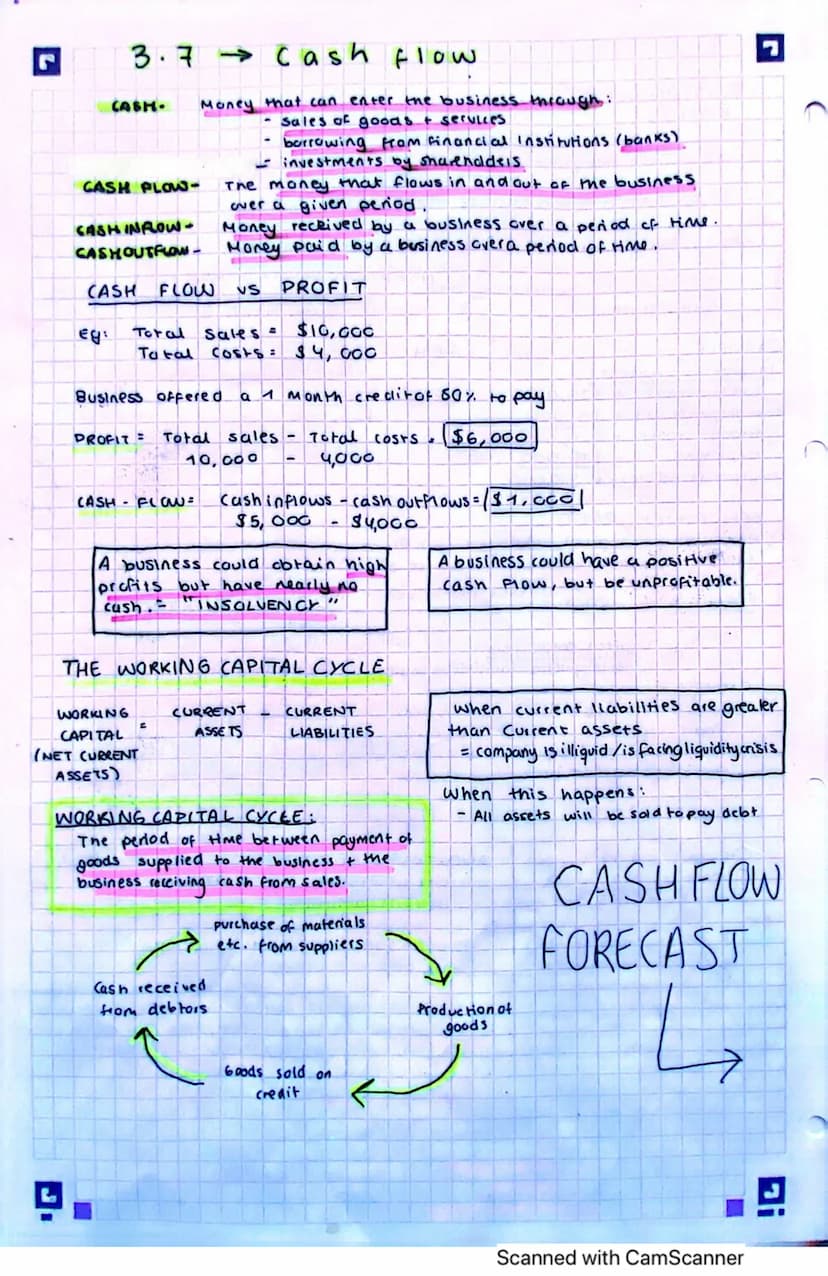 3.7 → Cash flow
CASH- Money that can enter the business through:
- sales of goods + services
- borrowing from financial institutions (banks)
- investments by shareholders
CASH FLOW- The money that flows in and out of the business
over a given period.
CASH INFLOW- Money received by a business over a period of time.
CASH OUTFLOW- Money paid by a business over a period of time.
CASH FLOW VS PROFIT
Eg: Total sales = $10,000
Total costs = $4,000
Business offered a 1 month credit of 50% to pay
PROFIT = Total sales - Total costs = $6,000
10,000 - 4,000
CASH-FLOW = Cash inflows - cash outflows = $1,000
$5,000 - $4000
A business could obtain high
profits but have nearly no
cash. = "INSOLVENCY"
A business could have a positive
cash flow, but be unprofitable.
THE WORKING CAPITAL CYCLE
WORKING CAPITAL (NET CURRENT ASSETS) = CURRENT ASSETS - CURRENT LIABILITIES
When current liabilities are greater
than current assets
= company is illiquid / is facing liquidity crisis
When this happens:
- All assets will be sold to pay debt
WORKING CAPITAL CYCLE:
The period of time between payment of
goods supplied to the business + the
business receiving cash from sales.
purchase of materials
etc. from suppliers
Production of
goods
Goods sold on
credit
Cash received
from debtors
CASH FLOW
FORECAST
Scanned with CamScanner